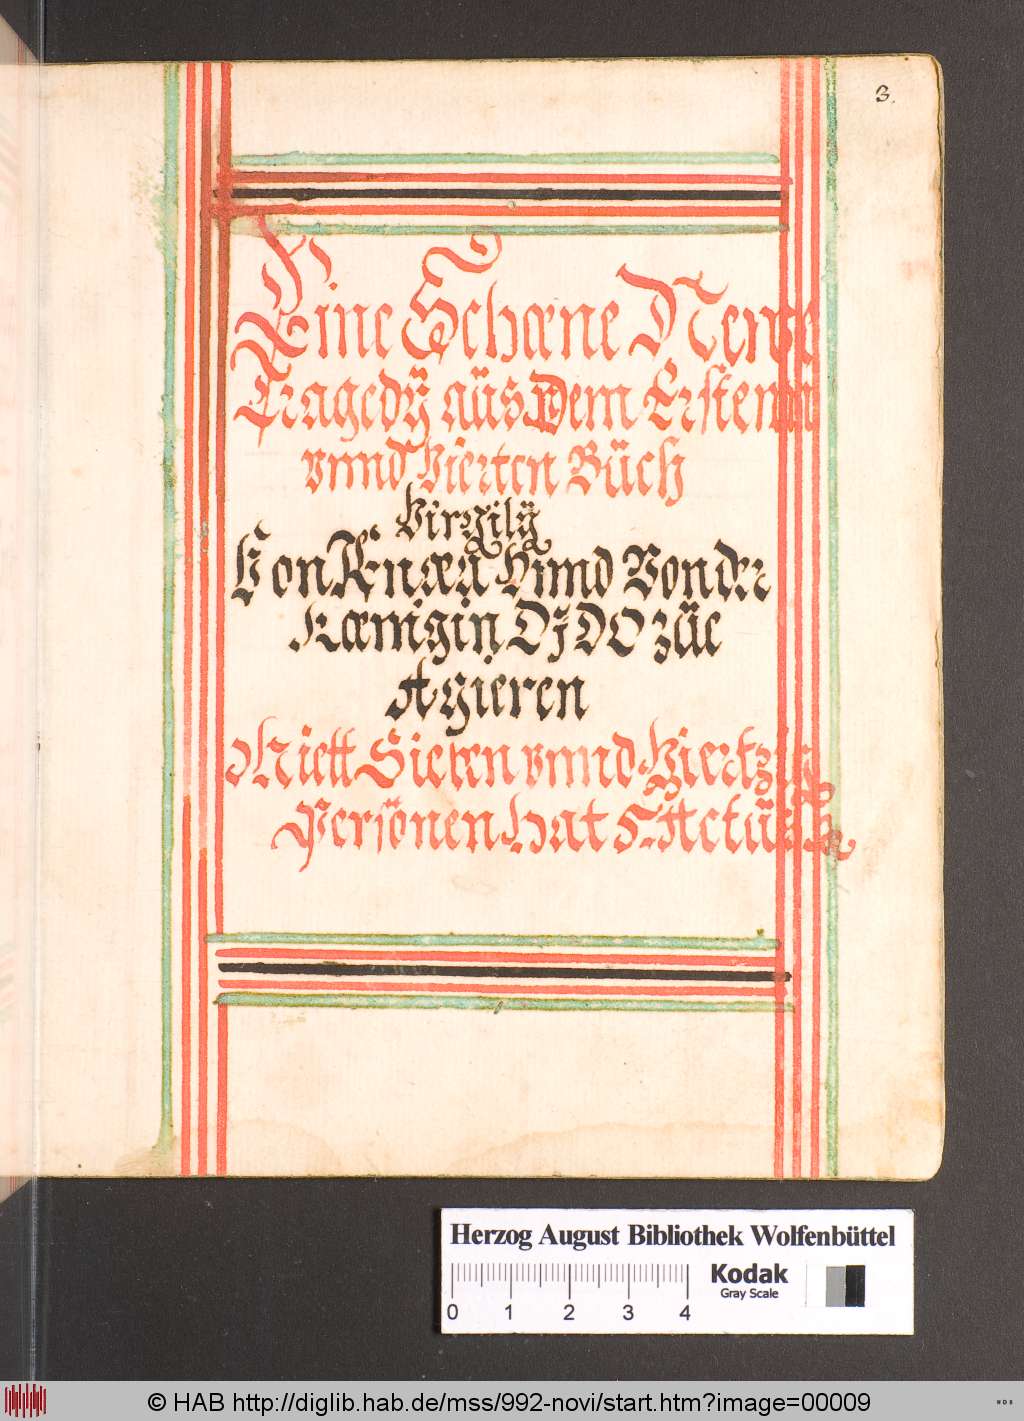 3.
Eine Schœne Newe
Tragedÿ aüs Dem Ersten
vnnd Vierten Büch
Virgilÿ
Von Ænæa Vnnd Von der
Kœnigin DJDO züe
Agieren
Miett Sieben vnnd Viertzig
Persönen hat 5. Actüs
Herzog August Bibliothek Wolfenbüttel
Kodak
Gray Scale
0 1 2 3 4
© HAB http://diglib.hab.de/mss/992-novi/start.htm?image=00009